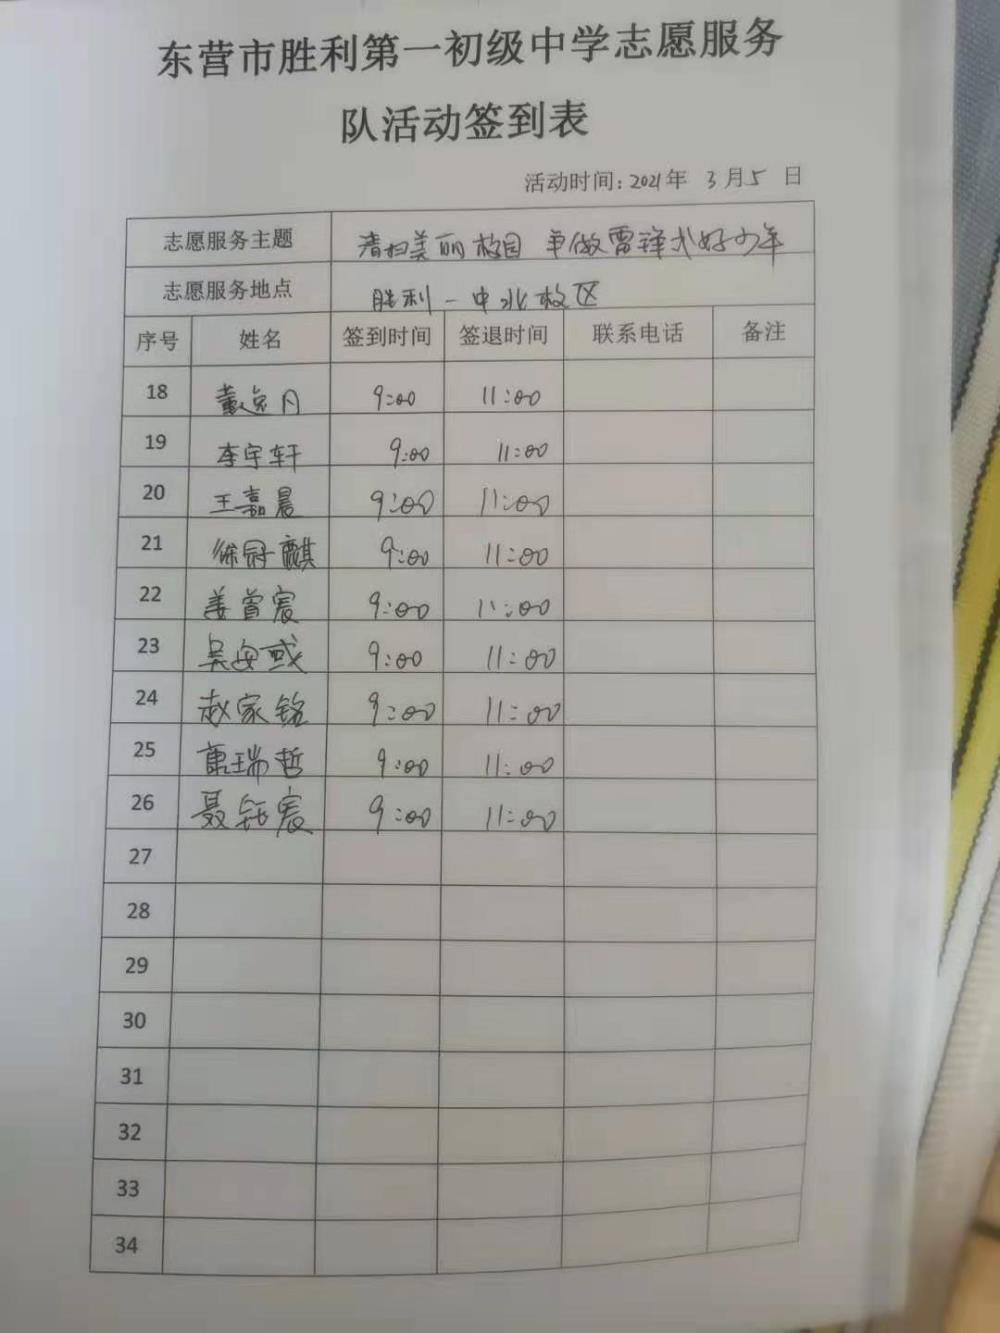 东营市胜利第一初级中学志愿服务
队活动签到表
活动时间：2021年 3月5 日
志愿服务主题 清扫美丽校园 争做雷锋式好少年
志愿服务地点 胜利一中北校区
序号 姓名 签到时间 签退时间 联系电话 备注
18 9:00 11:00
19 李宇轩 9:00 11:00
20 王嘉晨 9:00 11:00
21 徐冠麒 9:00 11:00
22 姜曾宸 9:00 11:00
23 吴安彧 9:00 11:00
24 赵家铭 9:00 11:00
25 唐瑞哲 9:00 11:00
26 聂钰宸 9:00 11:00
27
28
29
30
31
32
33
34